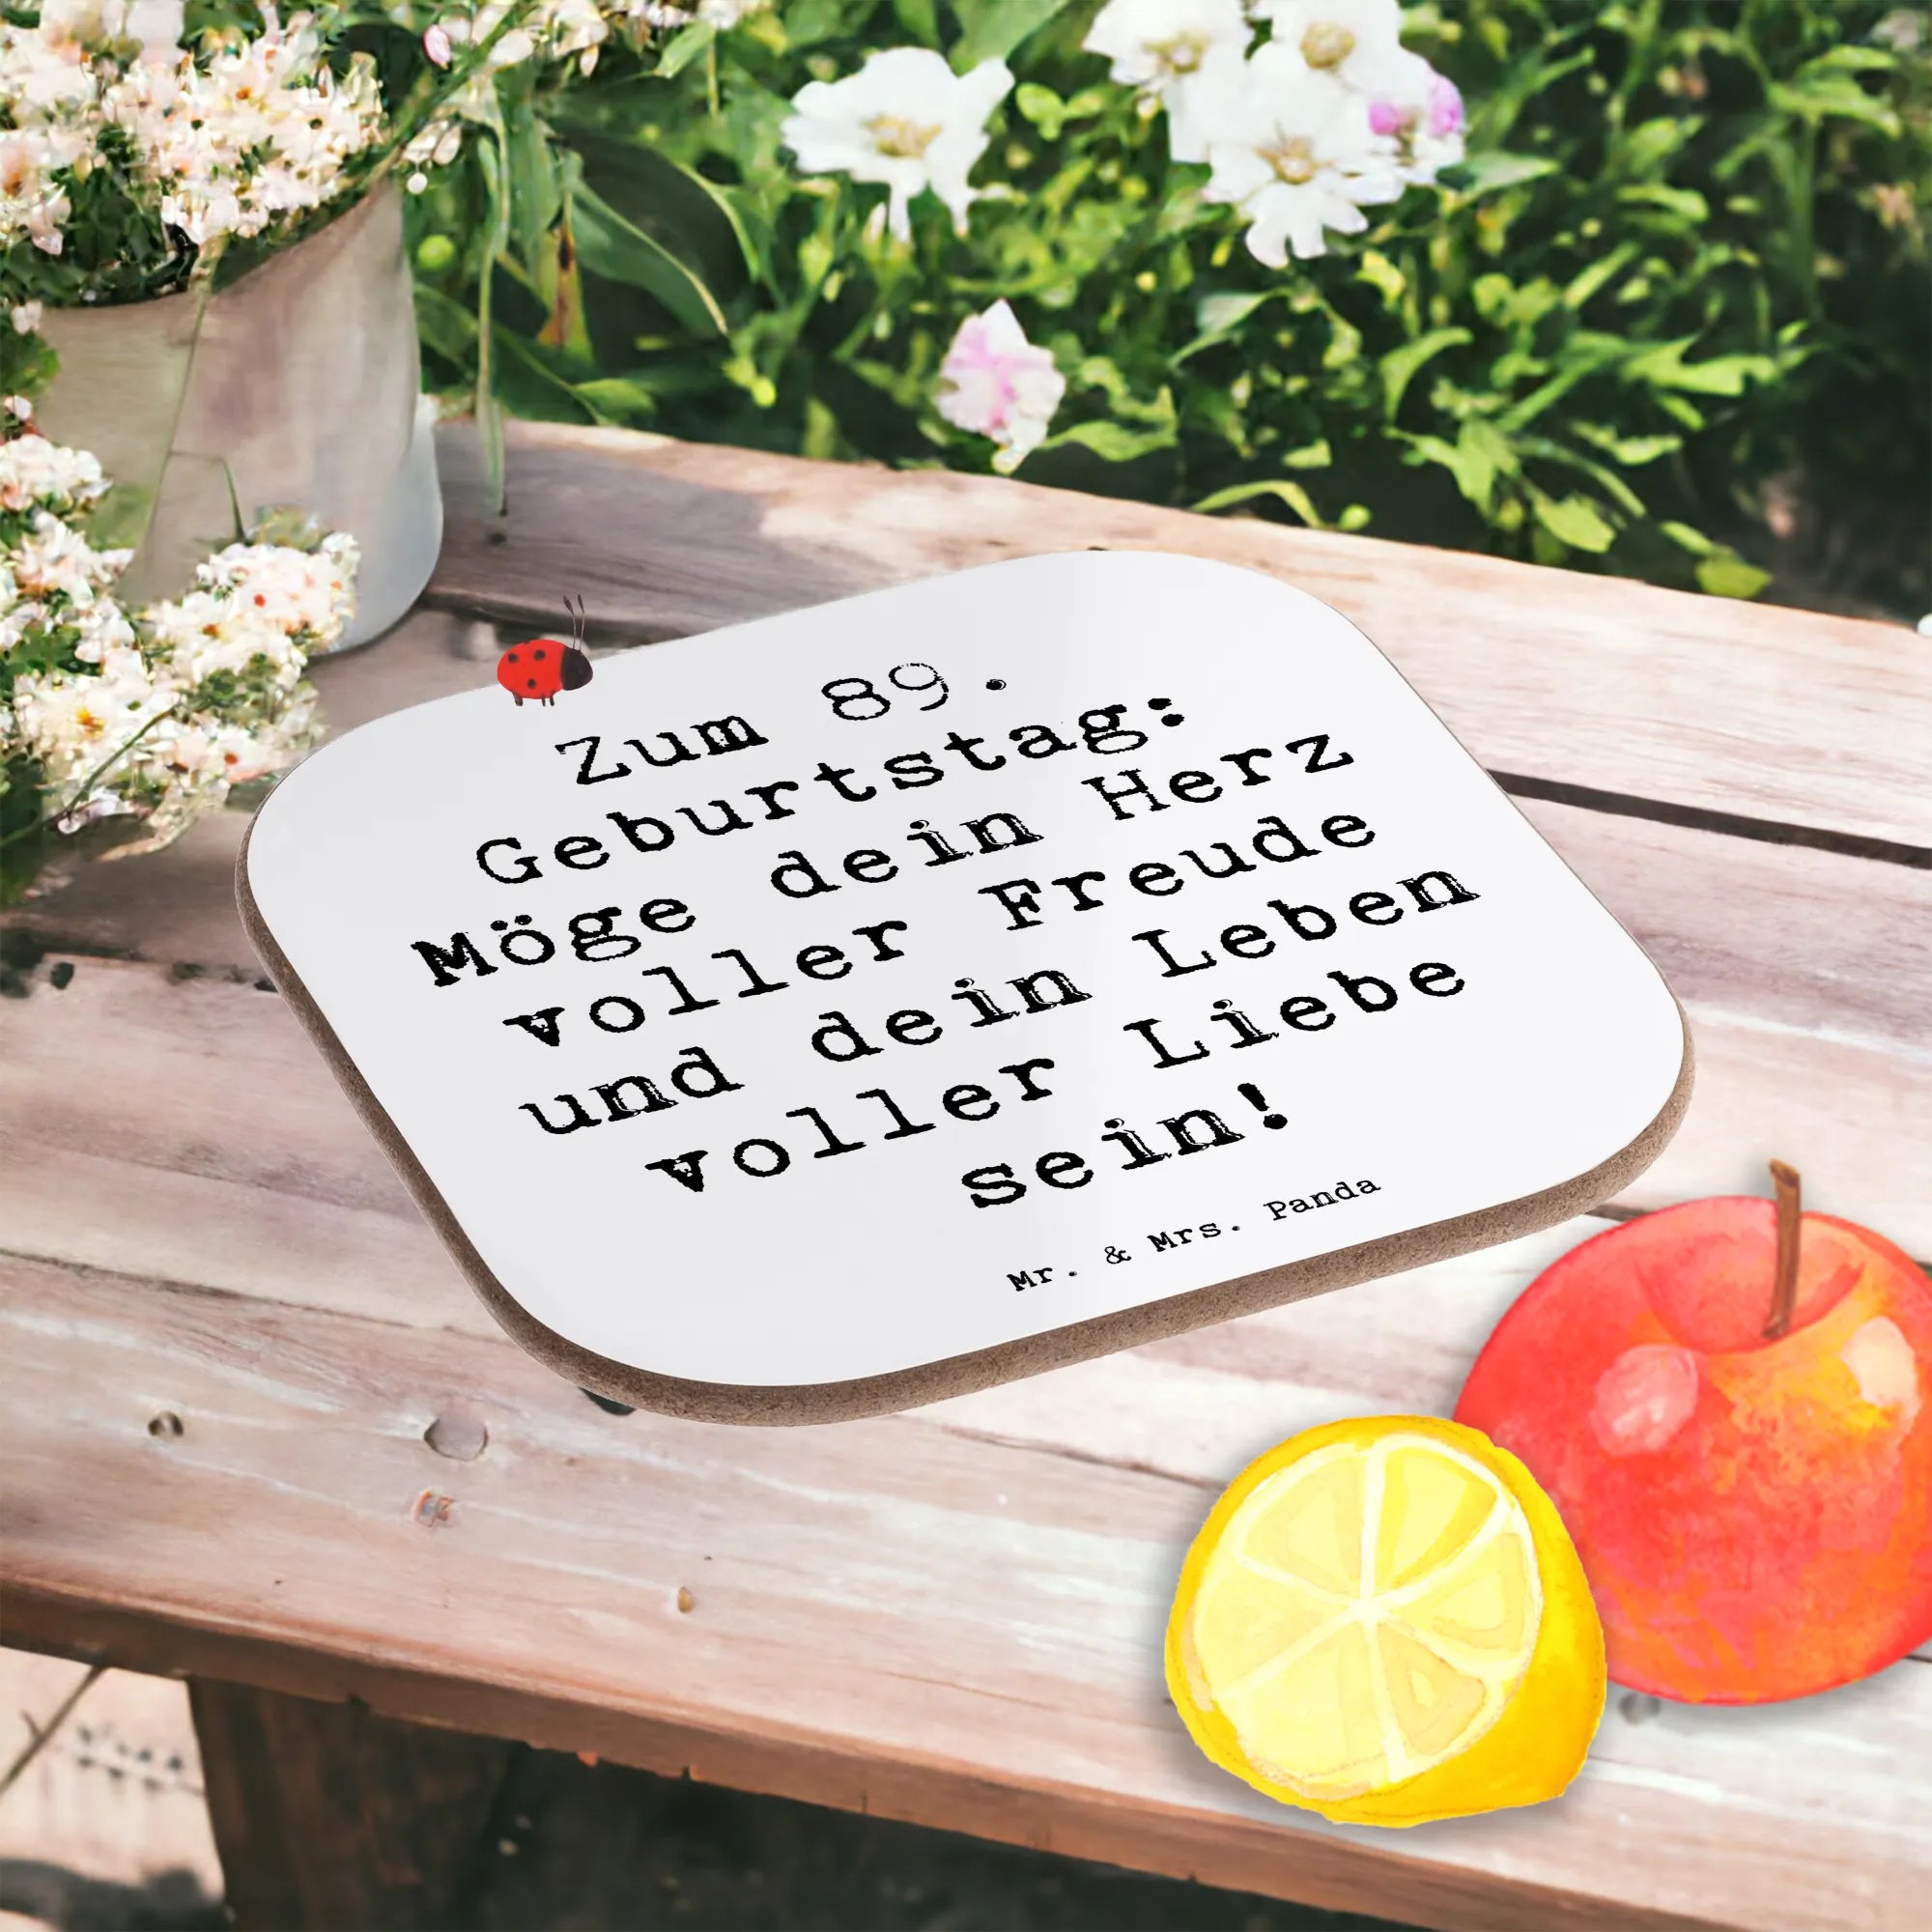 Zum 89.
Geburtstag:
Möge dein Herz
voller Freude
und dein Leben
voller Liebe
sein!
Mr. & Mrs. Panda